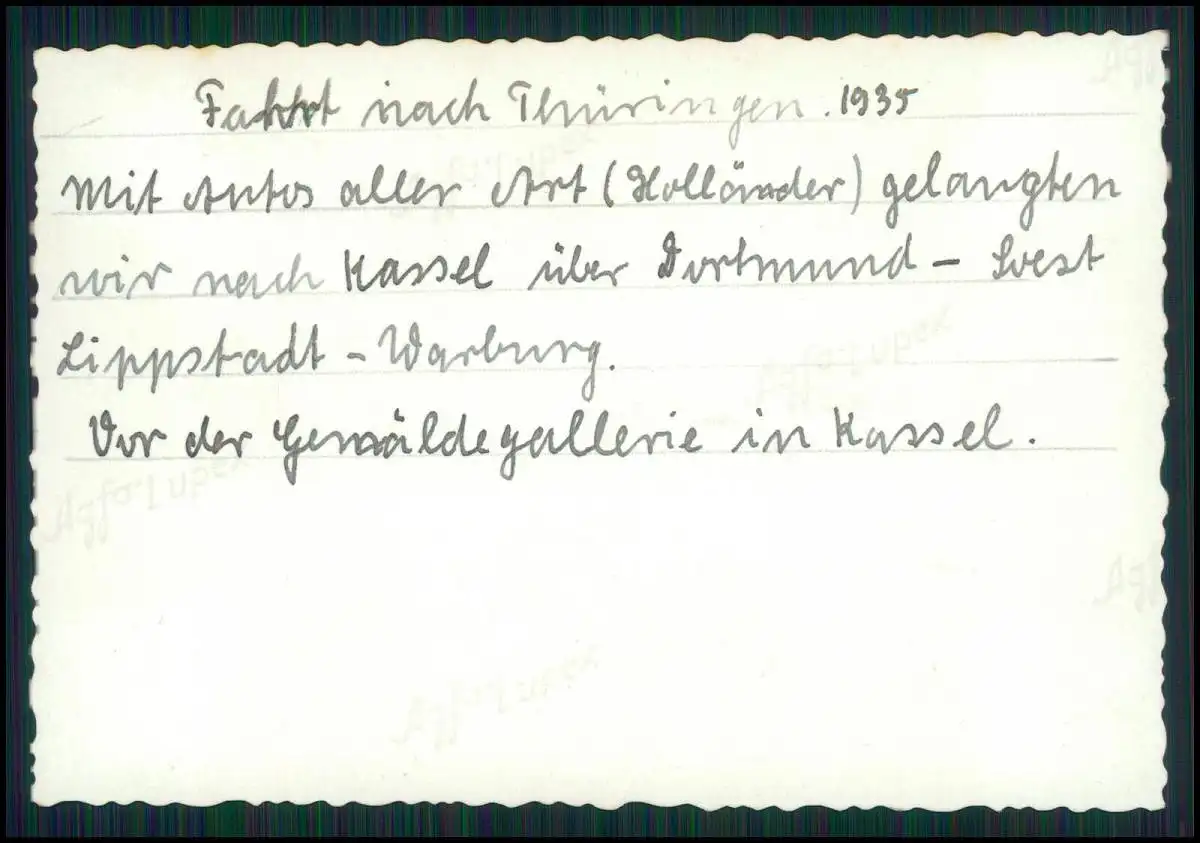 Fahrt nach Thüringen. 1935
Mit Autos aller Art (Holländer) gelangten
wir nach Kassel über Dortmund - Soest
Lippstadt - Warburg.
Vor der Gemäldegallerie in Kassel.
Agfa Lupex
Agfa Lupex
Agfa Lupex